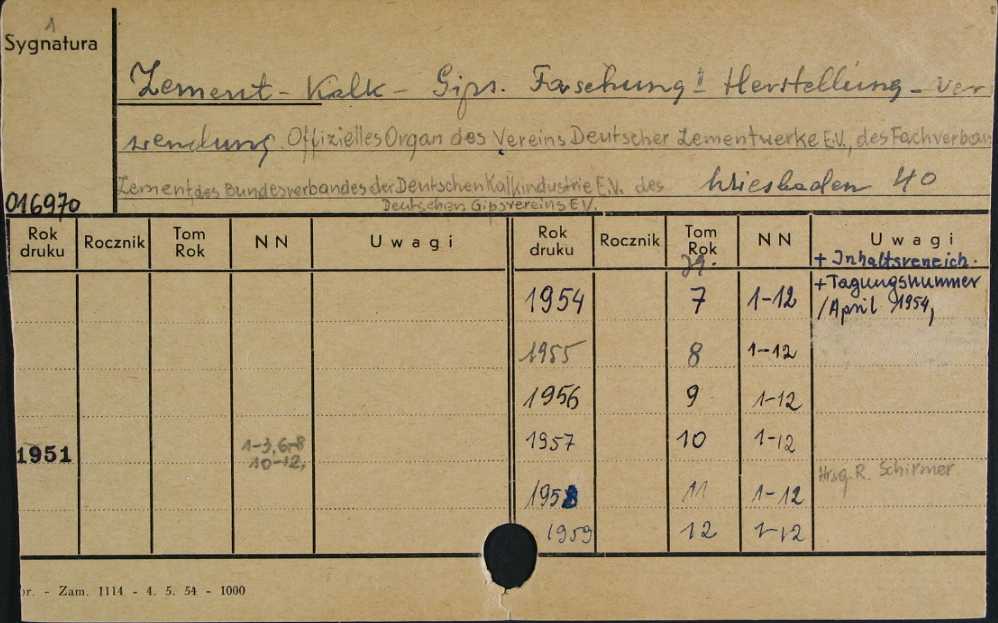 1
Sygnatura
Zement - Kalk - Gips. Forschung Herstellung - Ver
wendung. Offizielles Organ des Vereins Deutscher Zementwerke E.V., des Fachverban
Zement, des Bundesverbandes der Deutschen Kalkindustrie E.V. des Wiesbaden 40
016970
Deutschen Gipsvereins E.V.
Rok druku Rocznik Tom Rok N N Uwagi Rok druku Rocznik Tom Rok N N Uwagi
Jg. + Inhaltsverzeich.
+ Tagungsnummer
1954 7 1-12 /April 1954,
1955 8 1-12
1956 9 1-12
1951 1-3, 6-8 1957 10 1-12
10-12,
Hrsg. R. Schirmer
1958 11 1-12
1959 12 1-12
r. - Zam. 1114 - 4. 5. 54 - 1000